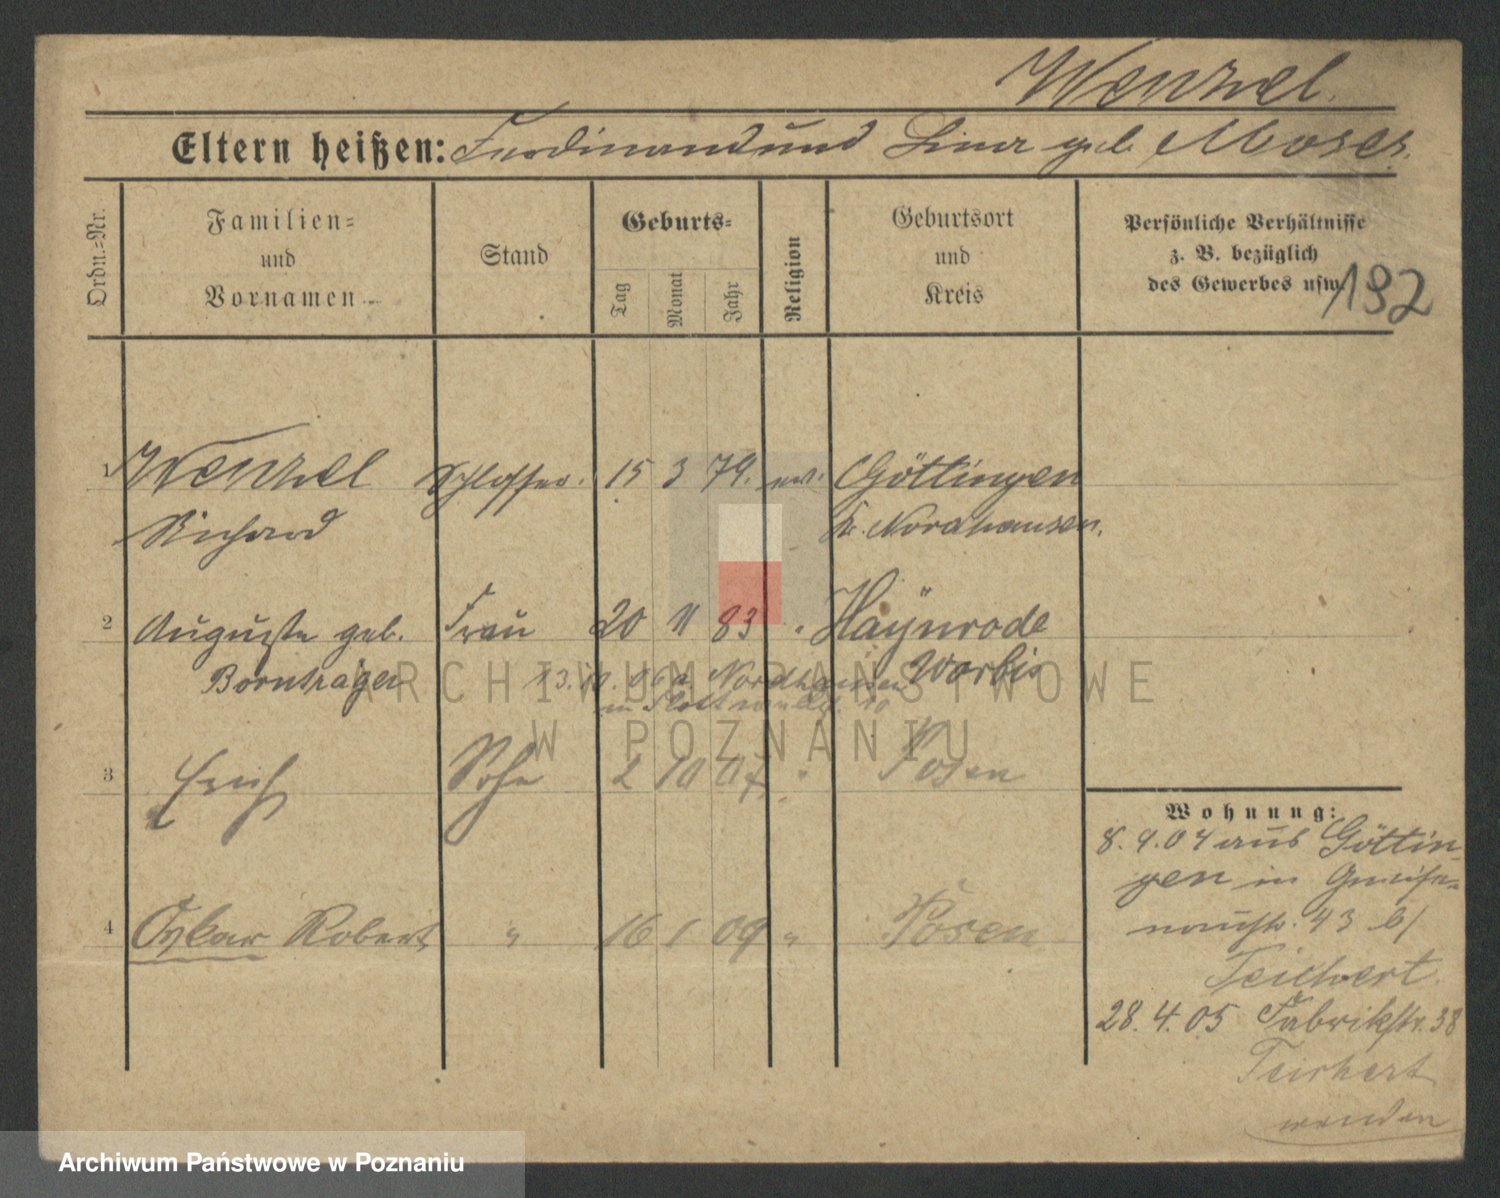 Wenzel.
Eltern heißen: Ferdinand und Lina geb. Moses.
Ordn.=Nr.
Familien=
und
Vornamen
Stand
Geburts=
Tag
Monat
Jahr
Religion
Geburtsort
und
Kreis
Persönliche Verhältnisse
z. B. bezüglich
des Gewerbes usw.
192
1 Wenzel Schlosser. 15 3 79. ev. Göttingen
Richard Kr. Nordhausen.
2 Auguste geb. Frau 20 11 83 " Haynrode
Bornträger Worbis
13. 10. 06 a. Nordhausen
in
3 Erich Sohn 2 10 07 " Posen
4 Oskar Robert " 16 1 09 " Posen
Wohnung:
8. 9. 04 aus Göttin-
gen in Gneise-
naustr. 43 b/
Teichert.
28. 4. 05 Fabrikstr. 38
Teichert
wenden
ARCHIWUM PAŃSTWOWE
W POZNANIU
Archiwum Państwowe w Poznaniu